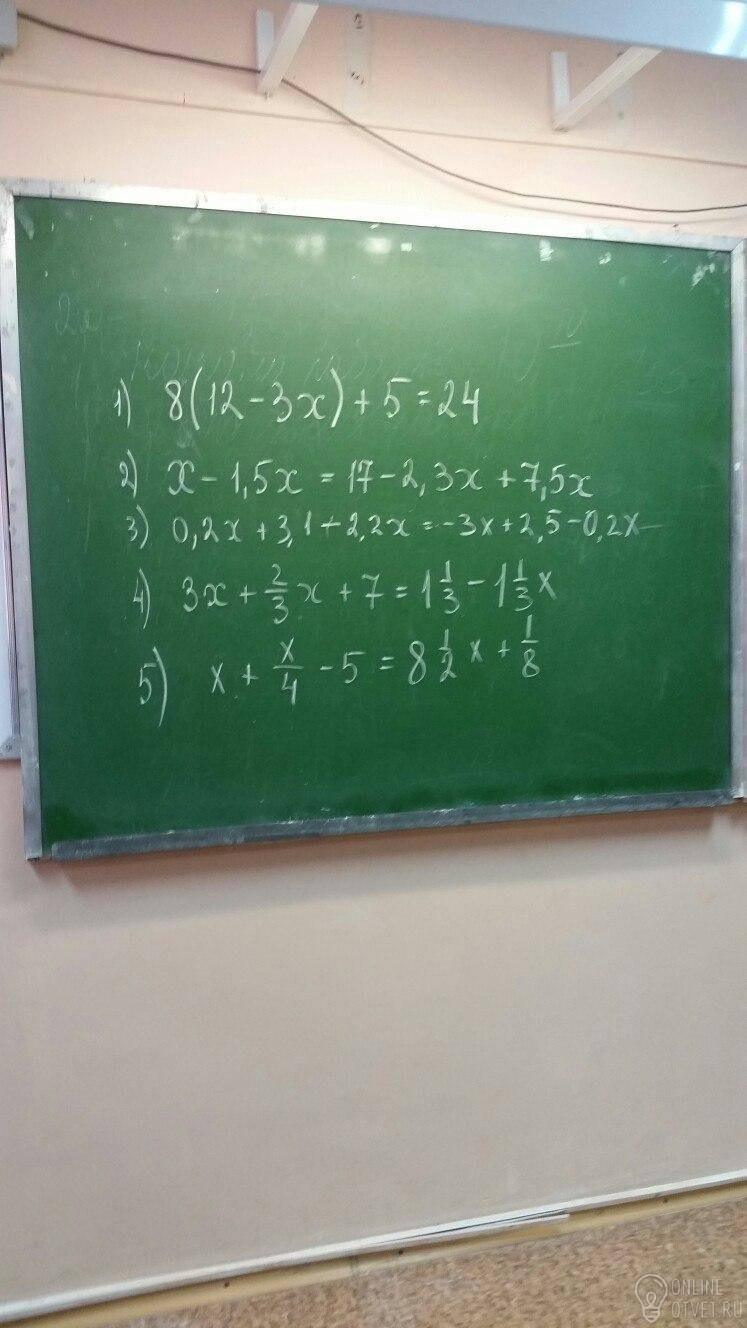 1) 8(12-3x)+5=24
2) x-1,5x=17-2,3x+7,5x
3) 0,2x+3,1-2,2x=-3x+2,5-0,2x
4) 3x+2/3x+7=1 1/3-1 1/3x
5) x+x/4-5=8 1/2x+1/8
ONLINE
OTVET.RU